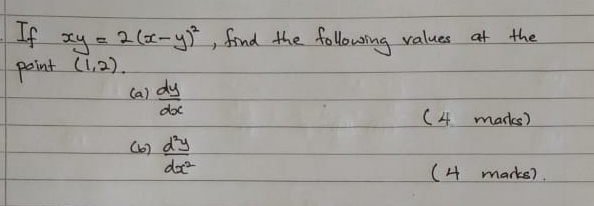 If xy = 2(x-y)², find the following values at the
point (1,2).
(a) dy/dx
(4 marks)
(b) d²y/dx²
(4 marks).